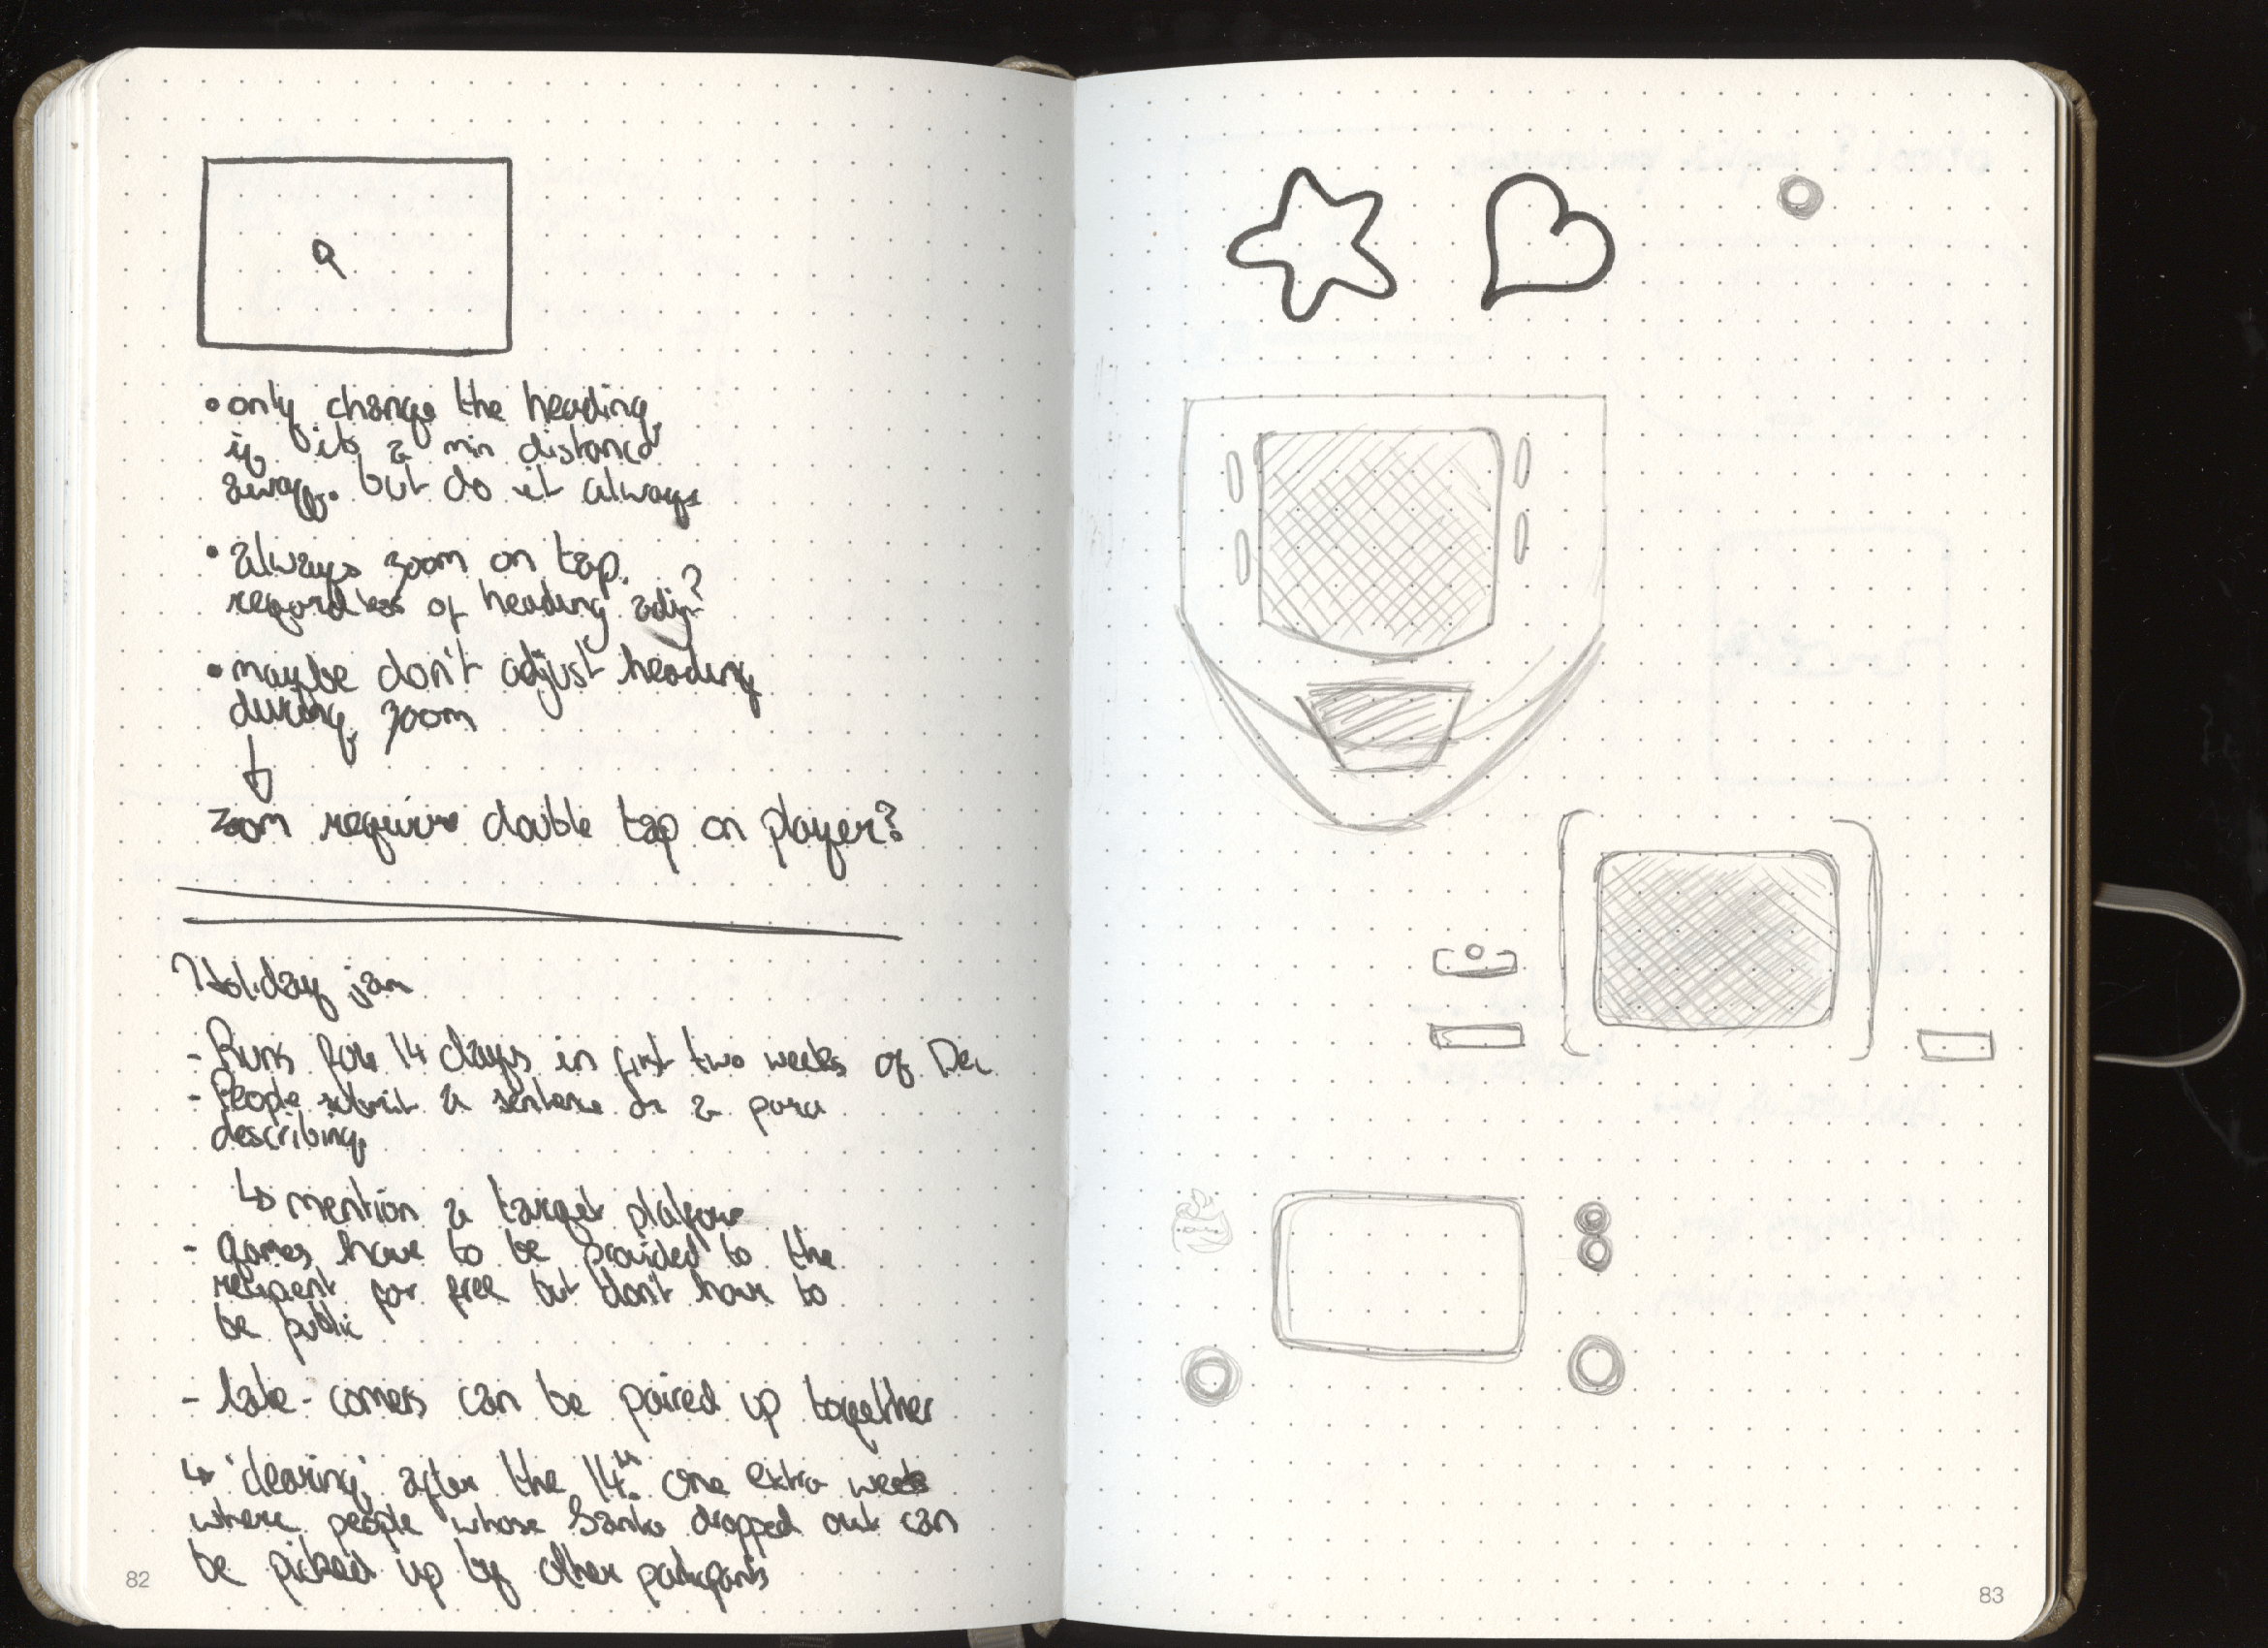 • only change the heading
if its a min distance
away. but do it always
• always zoom on tap.
regardless of heading adj?
• maybe don't adjust heading
during zoom
↓
zoom require double tap on player?
Holiday jam
- Runs for 14 days in first two weeks of Dec
- People submit a sentence or a para
describing
↳ mention a target platform
- games have to be provided to the
recipient for free but don't have to
be public
- late-comers can be paired up together
↳ 'clearing' after the 14th. one extra week
where people whose Santa dropped out can
be picked up by other participants
82
83